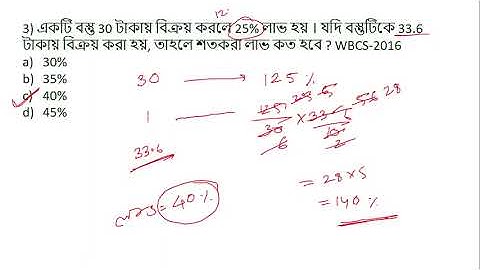 12
3) একটি বস্তু 30 টাকায় বিক্রয় করলে 25% লাভ হয় । যদি বস্তুটিকে 33.6
টাকায় বিক্রয় করা হয়, তাহলে শতকরা লাভ কত হবে ? WBCS-2016
a) 30%
b) 35%
c) 40%
d) 45%
30 → 125 %
1 — 125 25 5 / 30 6 × 336 56 28 / 10 2
33.6
= 28 × 5
= 140 %
লাভ = 40 %